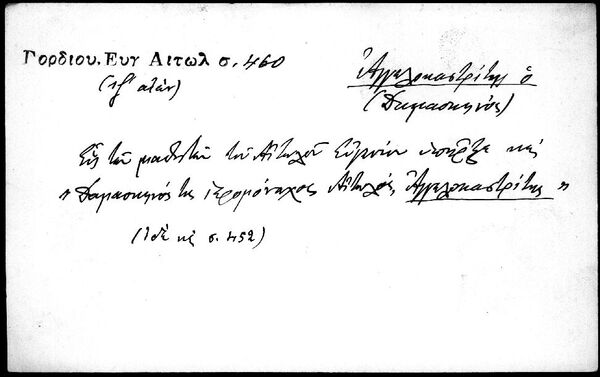 Γορδιου. Ευγ Αιτωλ σ. 460
(ιζ' αἰών)
Ἀγγελοκαστρίτης ὁ
(Δαμασκηνός)
Εἷς τῶν μαθητῶν τοῦ Αἰτωλοῦ Εὐγενίου ὑπῆρξε καὶ
"Δαμασκηνός τις ἱερομόναχος Αἰτωλός, Ἀγγελοκαστρίτης"
(Ἰδὲ καὶ σ. 452)